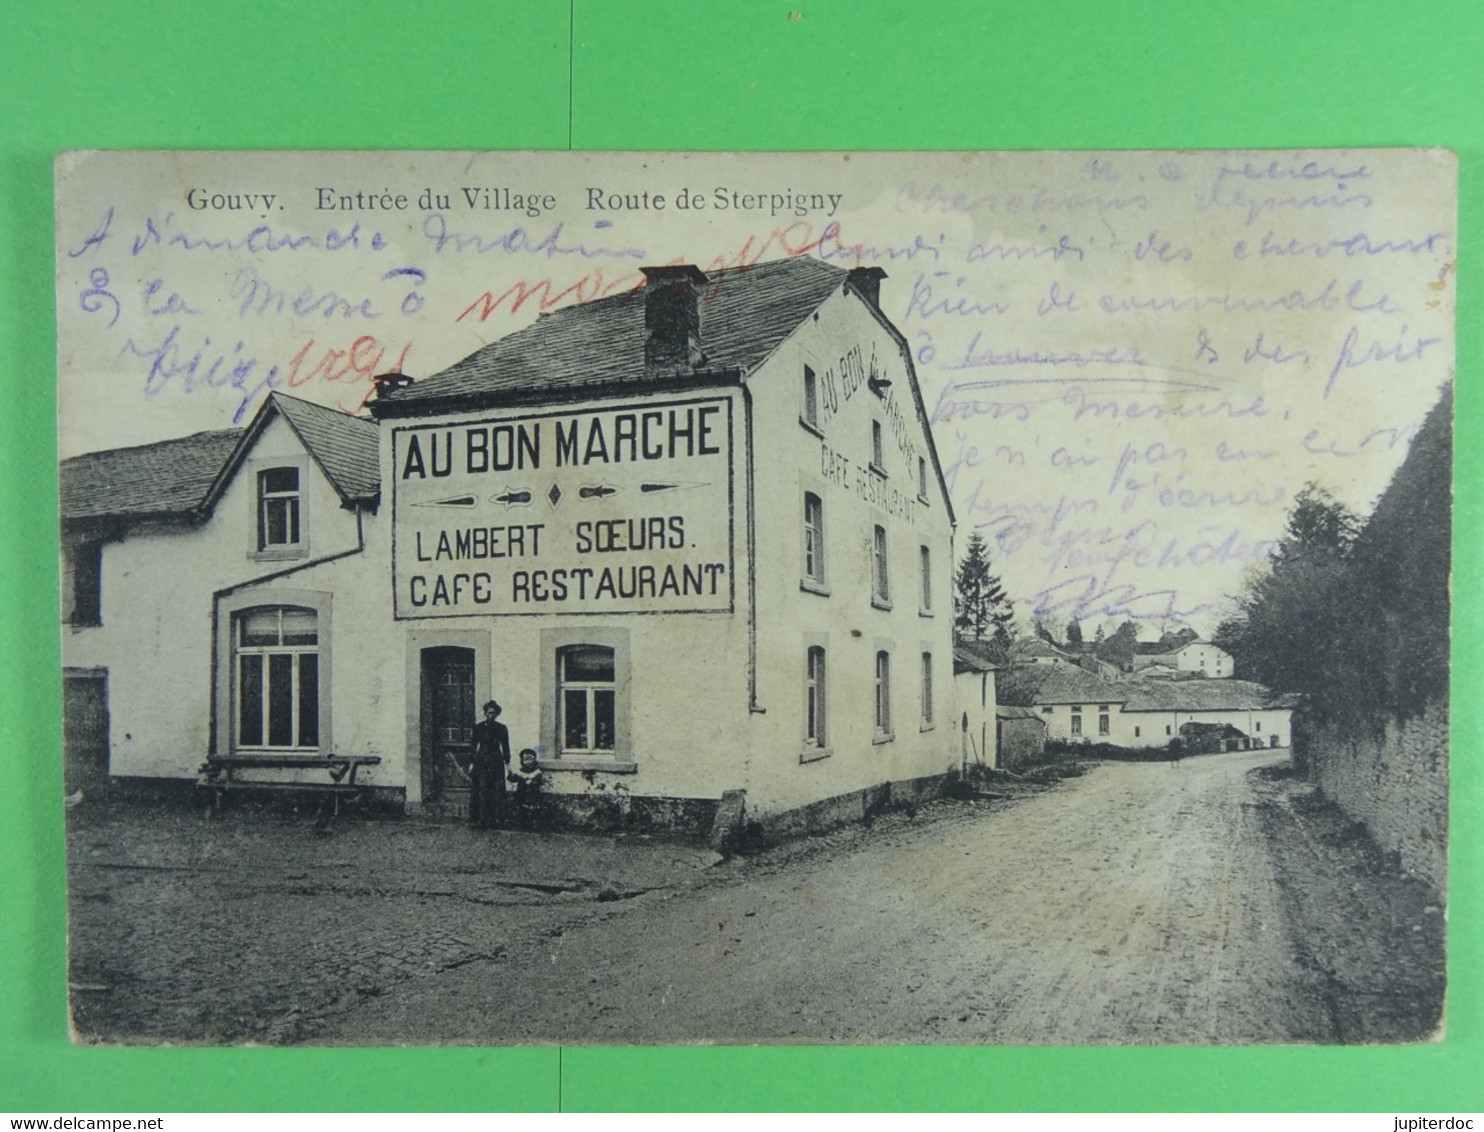 Gouvy. Entrée du Village Route de Sterpigny
A dimanche Matin
la Messe à
Cherchons depuis
lundi midi des chevaux
Rien de convenable
à trouver & des prix
hors mesure.
Je n'ai pas eu le
temps d'écrire
Neufchâteau
AU BON MARCHE
LAMBERT SŒURS.
CAFE RESTAURANT
AU BON MARCHE
CAFE RESTAURANT
delcampe.net
jupiterdoc